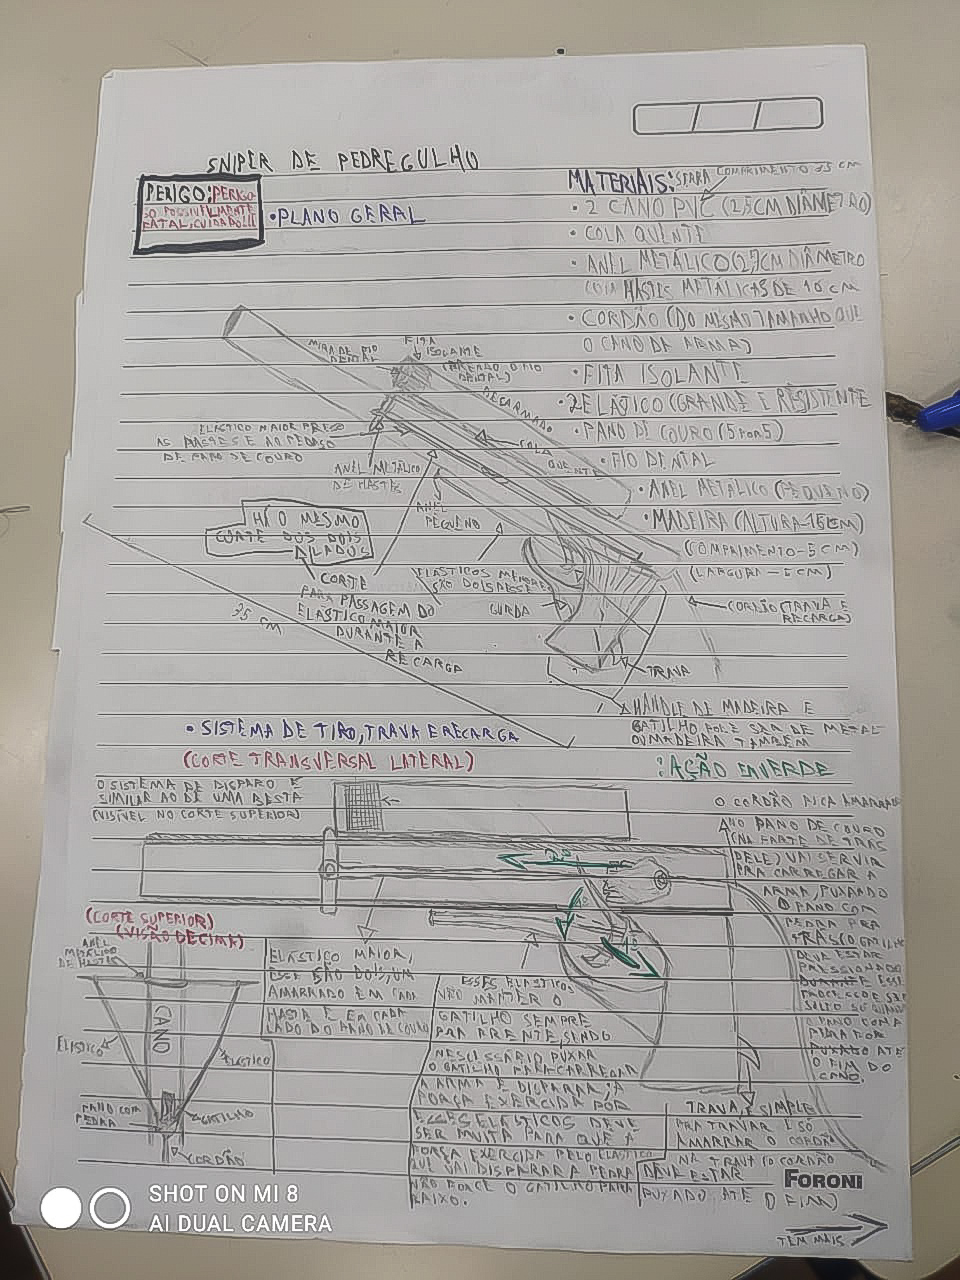 SNIPER DE PEDREGULHO
PERIGO: PERIGO
SO POSSIVELMENTE
FATAL, CUIDADO!!!
• PLANO GERAL
MATERIAIS: SERRA
COMPRIMENTO 35 CM
• 2 CANO PVC (2,5CM DIÂMETRO)
• COLA QUENTE
• ANEL METÁLICO (2,7CM DIÂMETRO
COM HASTES METÁLICAS DE 10 CM
• CORDÃO (DO MESMO TAMANHO QUE
O CANO DA ARMA)
• FITA ISOLANTE
• 2 ELÁSTICO (GRANDE E RESISTENTE
• PANO DE COURO (5 POR 5)
• FIO DENTAL
• ANEL METÁLICO (PEQUENO)
• MADEIRA (ALTURA-15CM)
(COMPRIMENTO-5CM)
(LARGURA-5CM)
MIRA DE FIO
DENTAL
FITA
ISOLANTE
(PRENDO O FIO
DENTAL)
ELASTICO MAIOR PRESO
AS HASTES E AO PEDAÇO
DE PANO DE COURO
ANEL METÁLICO
DE HASTES
COLA
QUENTE
ANEL
PEQUENO
HÁ O MESMO
CORTE DOS DOIS
LADOS
CORTE
PARA PASSAGEM DO
ELASTICO MAIOR
DURANTE A
RECARGA
ELASTICOS MENORES
SÃO DOIS DESSE
CORDÃO (TRAVA E
RECARGA)
TRAVA
35 CM
HANDLE DE MADEIRA E
GATILHO PODE SER DE METAL
OU MADEIRA TAMBÉM
• SISTEMA DE TIRO, TRAVA E RECARGA
(CORTE TRANSVERSAL LATERAL)
: AÇÃO EM VERDE
O SISTEMA DE DISPARO É
SIMILAR AO DE UMA BESTA
(VISIVEL NO CORTE SUPERIOR)
2º
1º
1º
O CORDÃO FICA AMARRADO
NO PANO DE COURO
(NA PARTE DE TRÁS
DELE) VAI SERVIR
PRA CARREGAR A
ARMA, PUXANDO
O PANO COM
PEDRA PRA
TRÁS, O GATILHO
DEVE ESTAR
PRESSIONADO
DURANTE ESSE
PROCESSO E SER
SOLTO SÓ QUANDO
O PANO COM A
PEDRA FOR
PUXADO ATÉ
O FIM DO
CANO.
(CORTE SUPERIOR)
(VISÃO DE CIMA)
ANEL
METÁLICO
DE HASTES
CANO
ELASTICO
ELASTICO
PANO COM
PEDRA
GATILHO
CORDÃO
ELASTICO MAIOR,
ESSE SÃO DOIS, UM
AMARRADO EM CADA
HASTE E EM CADA
LADO DO PANO DE COURO
ESSES ELASTICOS
VÃO MANTER O
GATILHO SEMPRE
PRA FRENTE, SENDO
NESCESSÁRIO PUXAR
O GATILHO PARA CARREGAR
A ARMA E DISPARAR; A
FORÇA EXERCIDA POR
ESSES ELASTICOS DEVE
SER MUITA PARA QUE A
FORÇA EXERCIDA PELO ELASTICO
QUE VAI DISPARAR A PEDRA
NÃO FORCE O GATILHO PARA
BAIXO.
TRAVA, É SIMPLES
PRA TRAVAR É SÓ
AMARRAR O CORDÃO
NA TRAVA (O CORDÃO
DEVE ESTAR
PUXADO ATÉ O FIM)
FORONI
TEM MAIS
SHOT ON MI 8
AI DUAL CAMERA